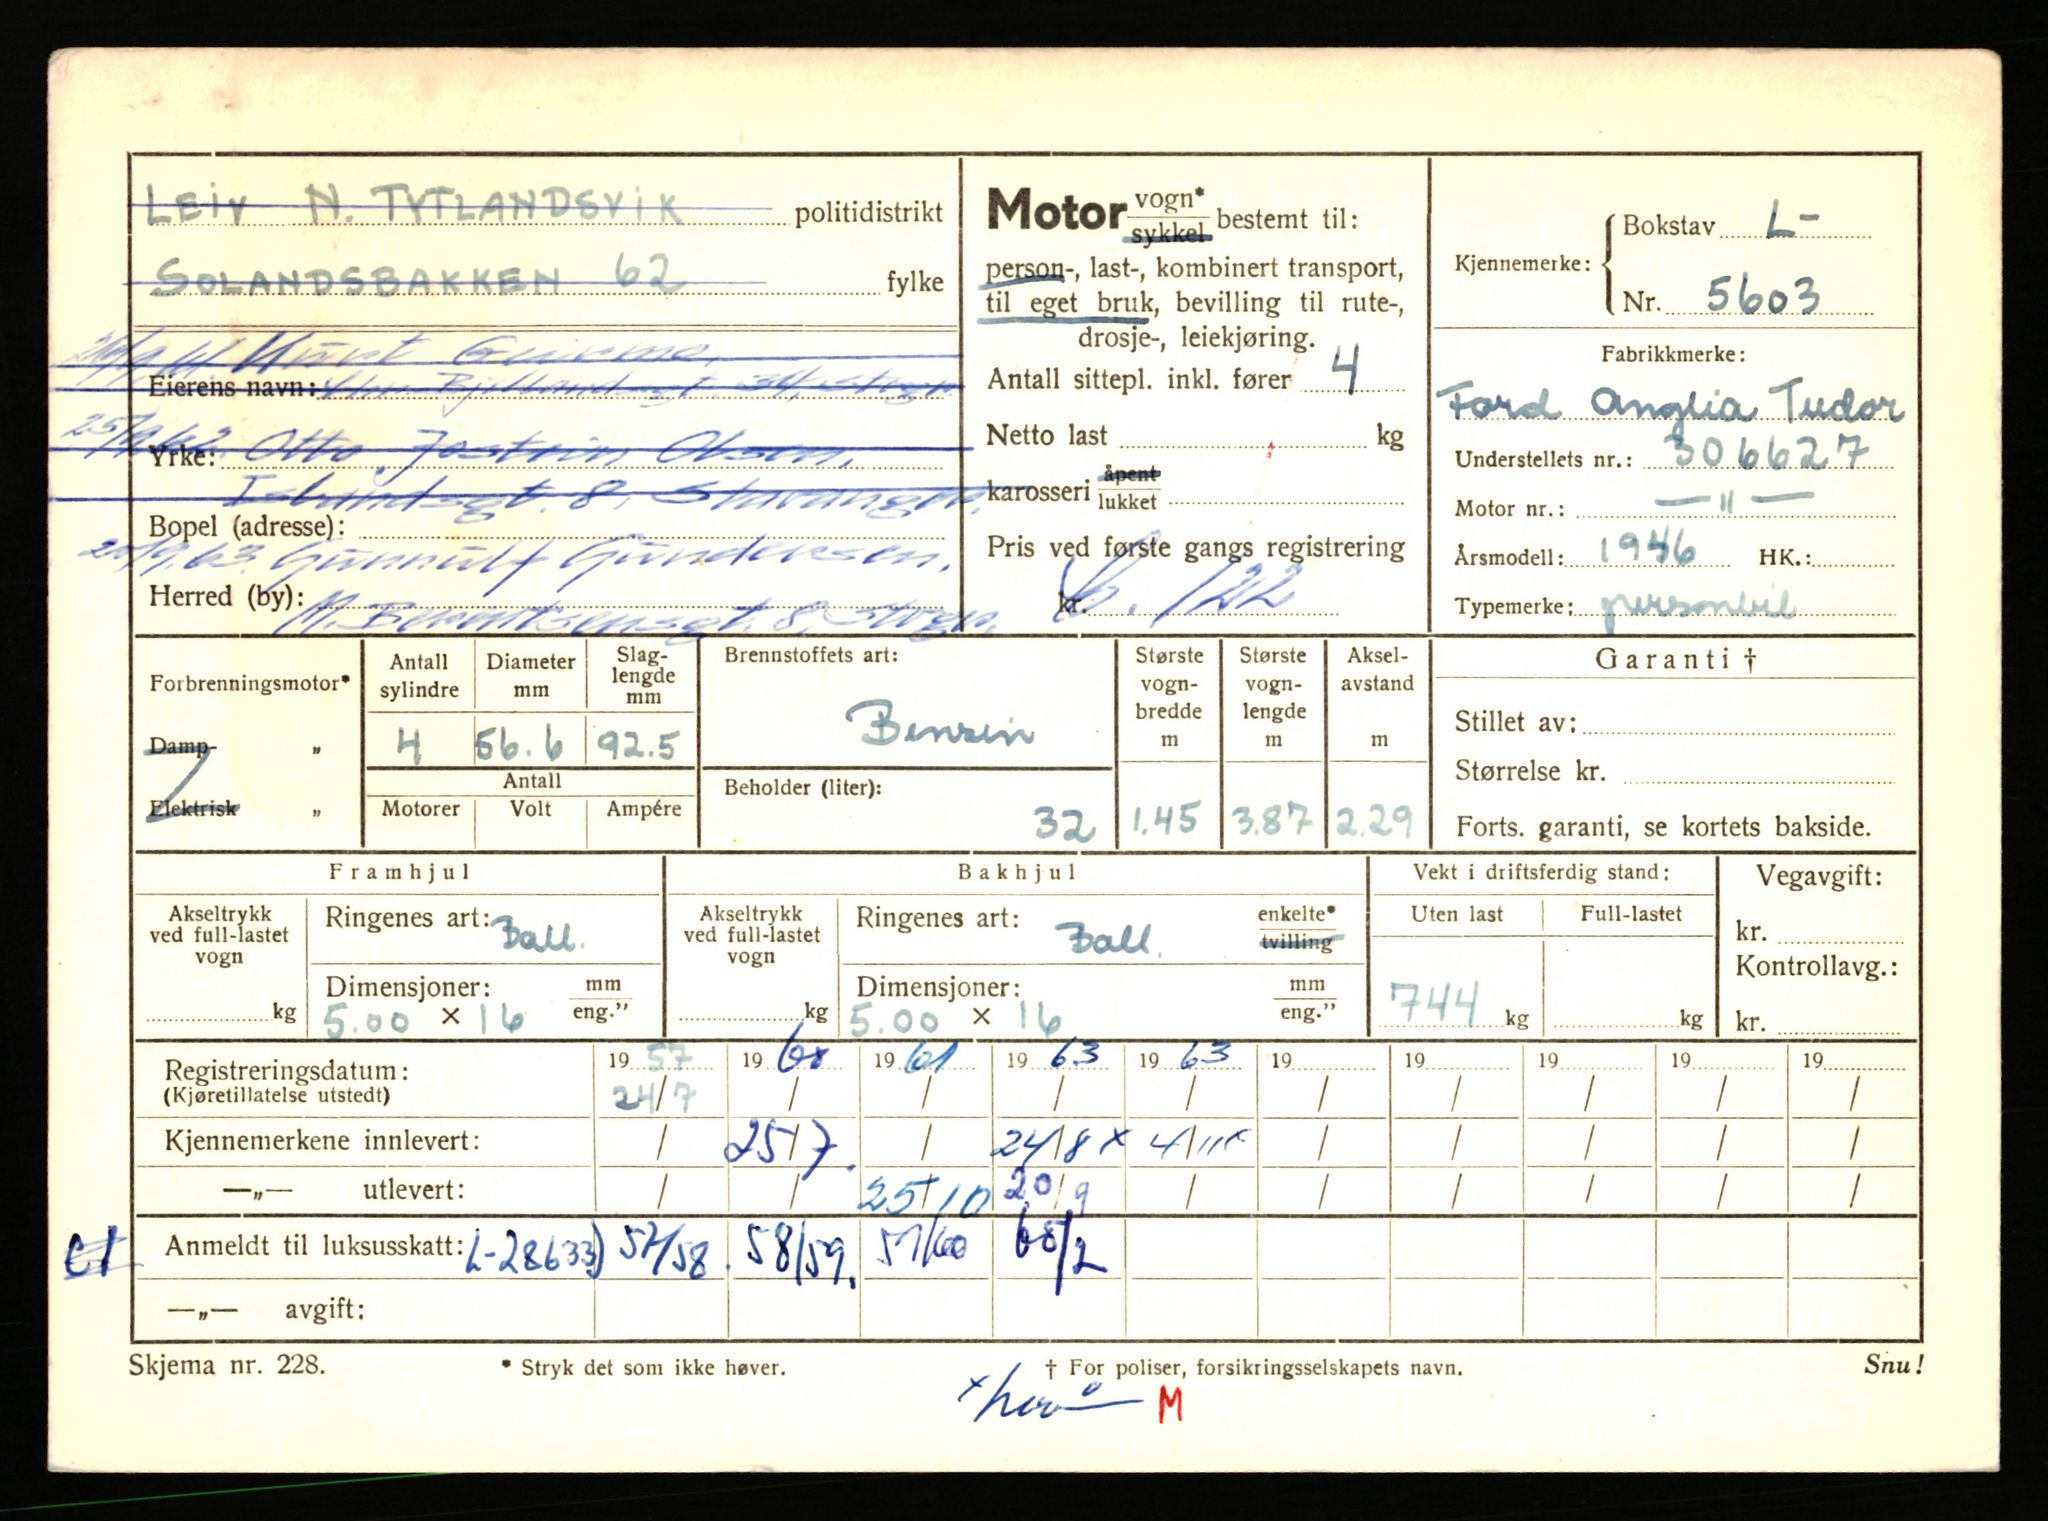 LEIV N. TYTLANDSVIK politidistrikt
SOLANDSBAKKEN 62 fylke
Kurt
Eierens navn: 34, Stvgr.
25/9 62 Otto Jostein Olsen,
Yrke:
gt. 8, Stavanger.
Bopel (adresse):
20/9.63. Gunnulf Gundersen,
Herred (by):
M. Berentsensgt. 8, Stvgr.
Motor vogn* sykkel bestemt til:
person-, last-, kombinert transport,
til eget bruk, bevilling til rute-,
drosje-, leiekjøring.
Antall sittepl. inkl. fører 4
Netto last kg
karosseri åpent lukket
Pris ved første gangs registrering
kr. 6. 122
Kjennemerke: Bokstav L-
Nr. 5603
Fabrikkmerke:
Ford Anglia Tudor
Understellets nr.: 306627
Motor nr.: — " —
Årsmodell: 1946 HK.:
Typemerke: personbil
Forbrenningsmotor*
Damp- „
Elektrisk „
Antall sylindre Diameter mm Slag-lengde mm
4 56.6 92.5
Antall
Motorer Volt Ampére
Brennstoffets art:
Bensin
Beholder (liter):
32
Største vogn-bredde m
1.45
Største vogn-lengde m
3.87
Aksel-avstand m
2.29
Garanti †
Stillet av:
Størrelse kr.
Forts. garanti, se kortets bakside.
Framhjul
Akseltrykk ved full-lastet vogn
kg
Ringenes art: Ball.
Dimensjoner: mm eng.”
5.00 × 16
Bakhjul
Akseltrykk ved full-lastet vogn
kg
Ringenes art: Ball. enkelte* tvilling
Dimensjoner: mm eng.”
5.00 × 16
Vekt i driftsferdig stand:
Uten last Full-lastet
744 kg kg
Vegavgift:
kr.
Kontrollavg.:
kr.
Registreringsdatum: 19 57 19 60 19 61 19 63 19 63 19 19 19 19 19
(Kjøretillatelse utstedt) 24/7 / / / / / / / / /
Kjennemerkene innlevert: / 25/7. / 24/8 x 4/11x / / / / /
—„— utlevert: / / 25/10 20/9 / / / / / /
Anmeldt til luksusskatt: L-28633) 57/58. 58/59. 59/60 68/2
—„— avgift:
Skjema nr. 228.
* Stryk det som ikke høver.
† For poliser, forsikringsselskapets navn.
Snu!
M